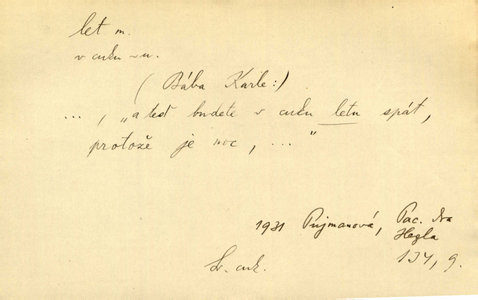 let m.
v cuku -u.
(Bába Karle:)
..., "a teď budete v cuku letu spát,
protože je noc, ..."
1931 Pujmanová, Pac. dra
Hegla
134, 9.
Sr. cuk.